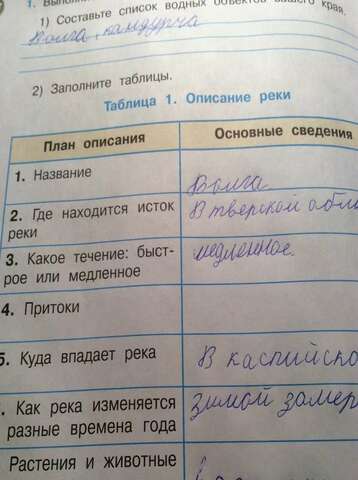 1.
1) Составьте список водных объектов вашего края.
Волга, кандурча
2) Заполните таблицы.
Таблица 1. Описание реки
План описания
Основные сведения
1. Название
Волга
2. Где находится исток
реки
В тверской обла
3. Какое течение: быст-
рое или медленное
медленное.
4. Притоки
5. Куда впадает река
В каспийско
. Как река изменяется
разные времена года
зимой замер
Растения и животные